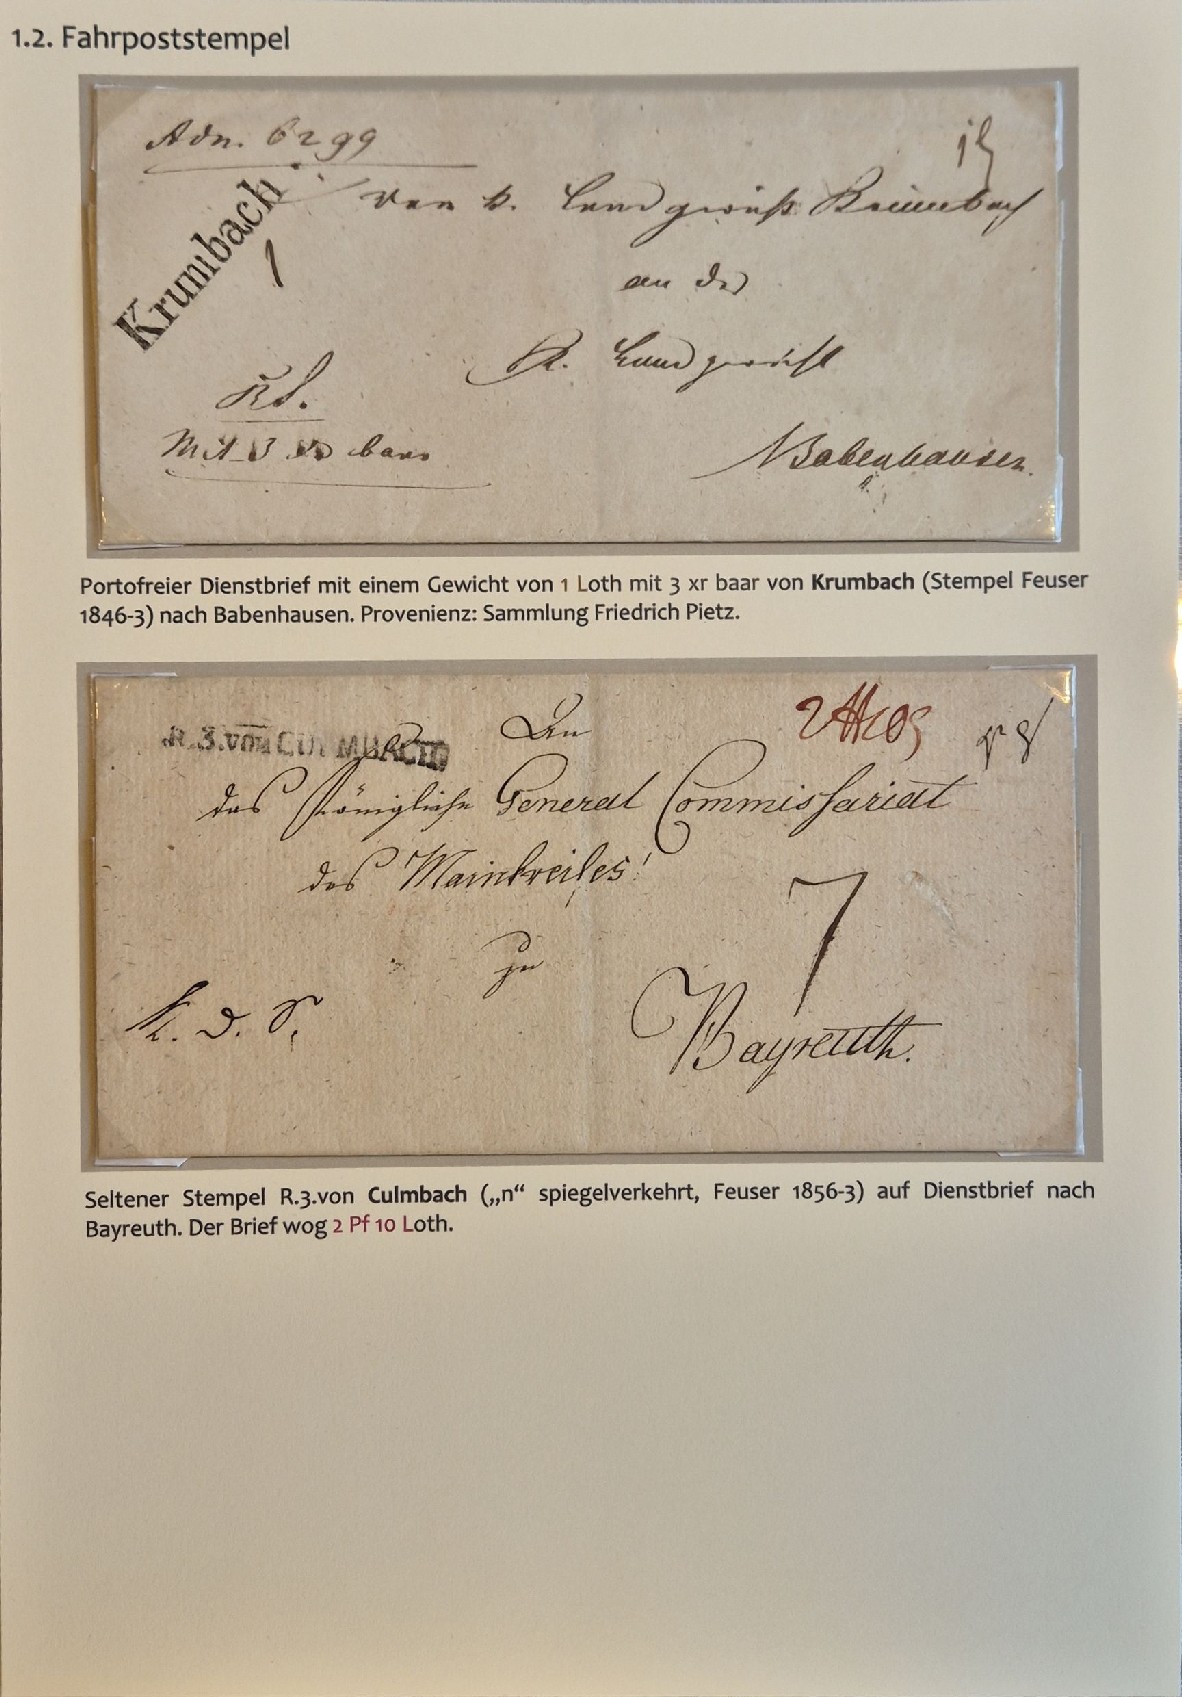 1.2. Fahrpoststempel
Adn. 6299
Krumbach
1
Von k. Landgericht Krumbach
an das
K. Landgericht
RS.
Mit 3 xr baar
Babenhausen.
Portofreier Dienstbrief mit einem Gewicht von 1 Loth mit 3 xr baar von Krumbach (Stempel Feuser
1846-3) nach Babenhausen. Provenienz: Sammlung Friedrich Pietz.
R.3.von CULMBACH
An
das Königliche General Commissariat
des Mainkreises!
7
zu
K. D. S.
Bayreuth.
Seltener Stempel R.3.von Culmbach („n“ spiegelverkehrt, Feuser 1856-3) auf Dienstbrief nach
Bayreuth. Der Brief wog 2 Pf 10 Loth.